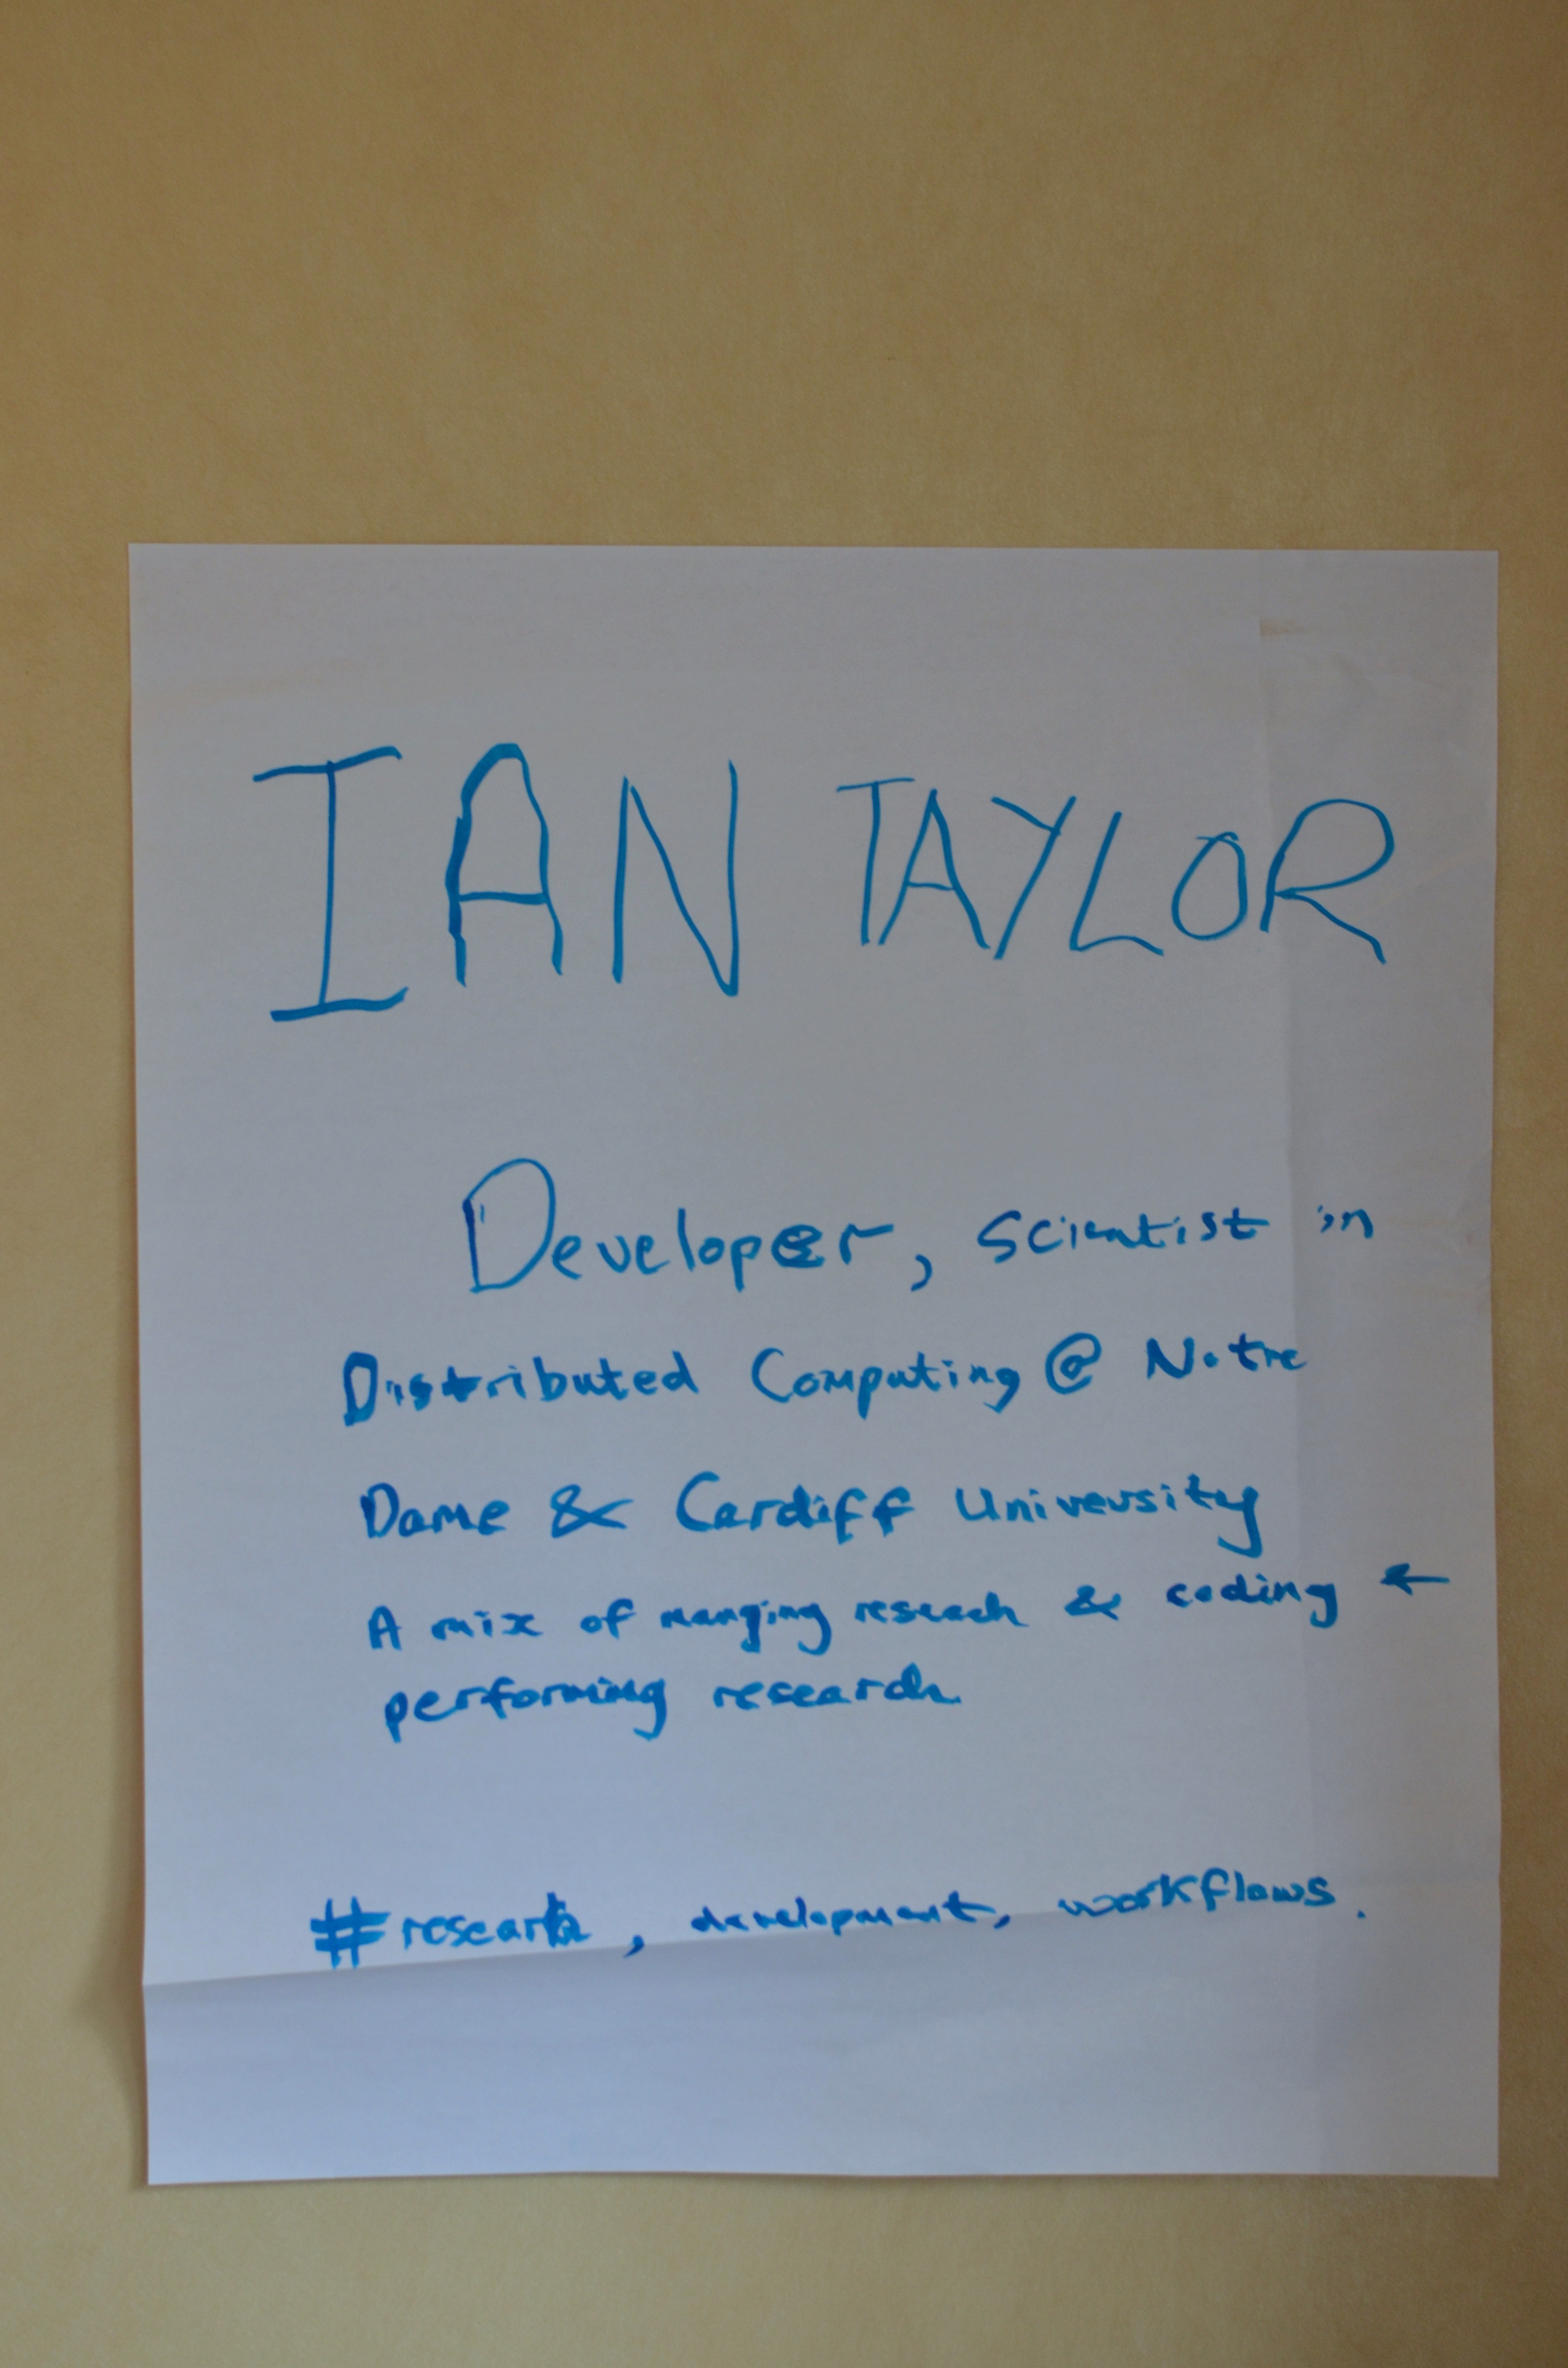 IAN TAYLOR
Developer, Scientist in
Distributed Computing @ Notre
Dame & Cardiff University
A mix of manging reseach & coding ←
performing research
#research, development, workflows.